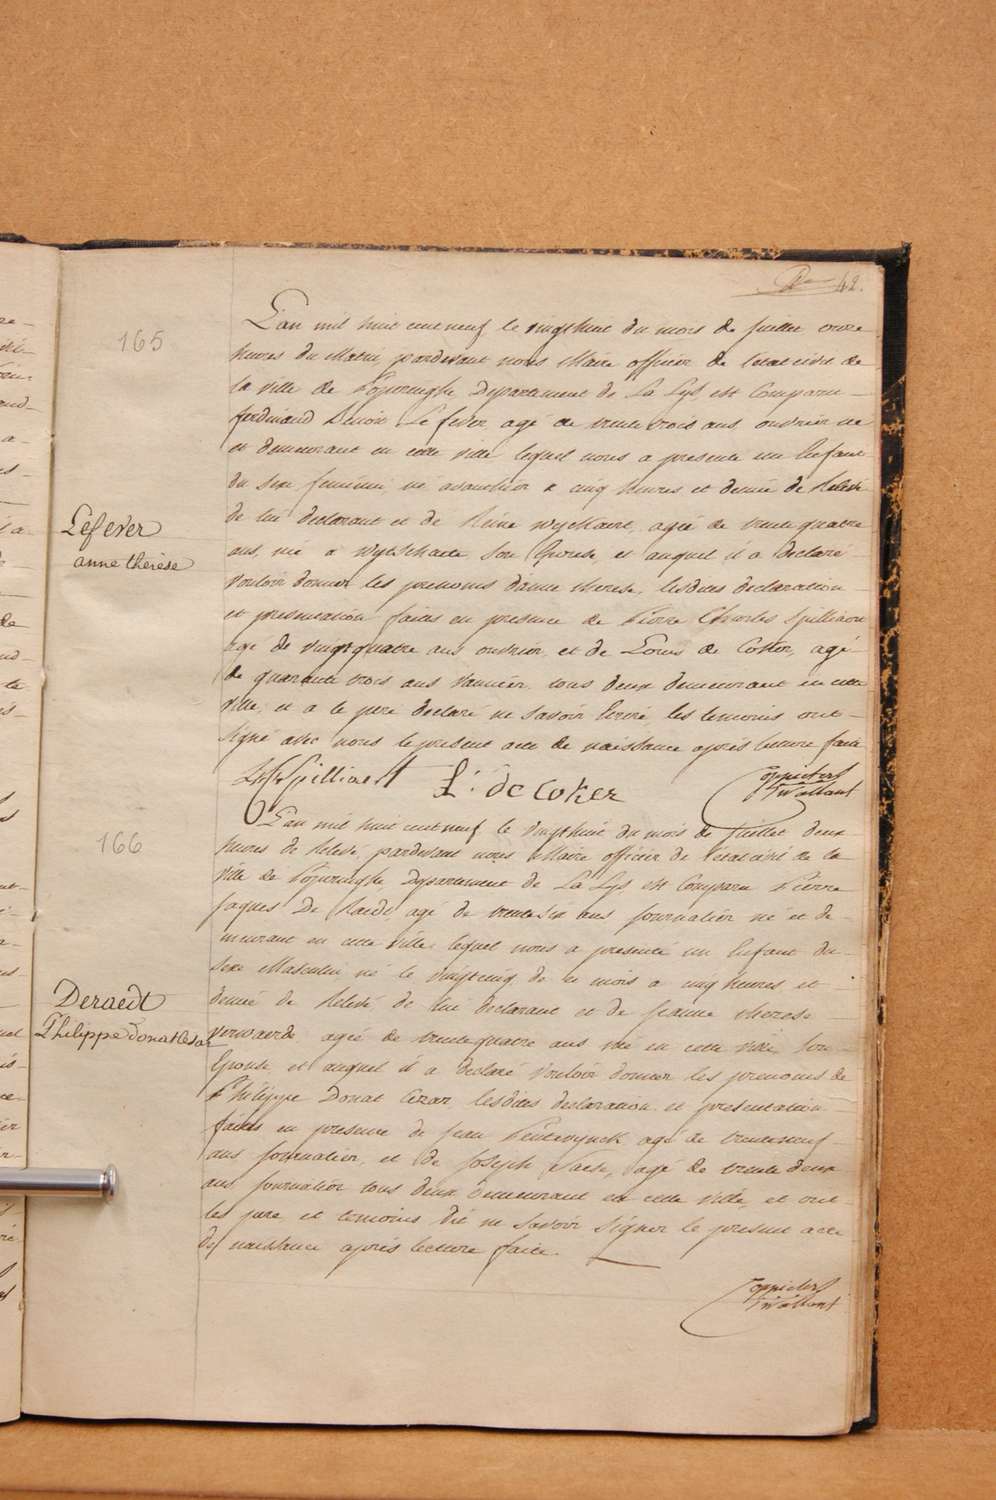 42.
165
L'an mil huit cent neuf le vingthuit du mois de Juillet onze
heures du Matin, pardevant nous Maire officier de l'etat civil de
la ville de Poperinghe, Departement de La Lys, est Comparu
ferdinand Benoit Lefever, agé de trente trois ans ouvrier né
et demeurant en cette ville lequel nous a presenté un Enfant
du sexe feminin, né avanthier a cinq heures et demie de Relevée
de lui declarant et de Reine Wyckaert, agée de trente quatre
ans, née a Wytschaete, son Epouse, et auquel il a declaré
vouloir donner les prenoms d'anne therese, lesdites declaration
et presentation faites en presence de Pierre Charles Spilliaert
agé de vingtquatre ans ouvrier, et de Louis de Coker, agé
de quarante trois ans vannier, tous deux demeurant en cette
ville, et a le pere declaré ne savoir Ecrire, les temoins ont
signé avec nous le present acte de naissance après lecture faite
Lefever
anne thérèse
Spilliaert L: de Coker
166
L'an mil huit cent neuf le vingthuit du mois de Juillet deux
heures de Relevé, pardevant nous Maire officier de l'etat civil de la
ville de Poperinghe, Departement de La Lys, est Comparu Pierre
Jaques De Raedt, agé de trentesix ans journalier né et de-
meurant en cette ville, lequel nous a presenté un Enfant du
sexe Masculin, né le vingtcinq de ce mois a cinq heures et
demie de Relevé, de lui declarant et de jeanne therese
Verwaerde, agée de trentequatre ans née en cette ville, son
Epouse, et auquel il a declaré vouloir donner les prenoms de
Philippe Donat Cezar, lesdites declaration et presentation
faites en presence de jean agé de trenteneuf
ans journalier, et de Joseph agé de trente deux
ans journalier tous deux demeurant en cette ville, et ont
les pere et temoins dit ne savoir signer le present acte
de naissance après lecture faite.
Deraedt
Philippe Donat Cesar